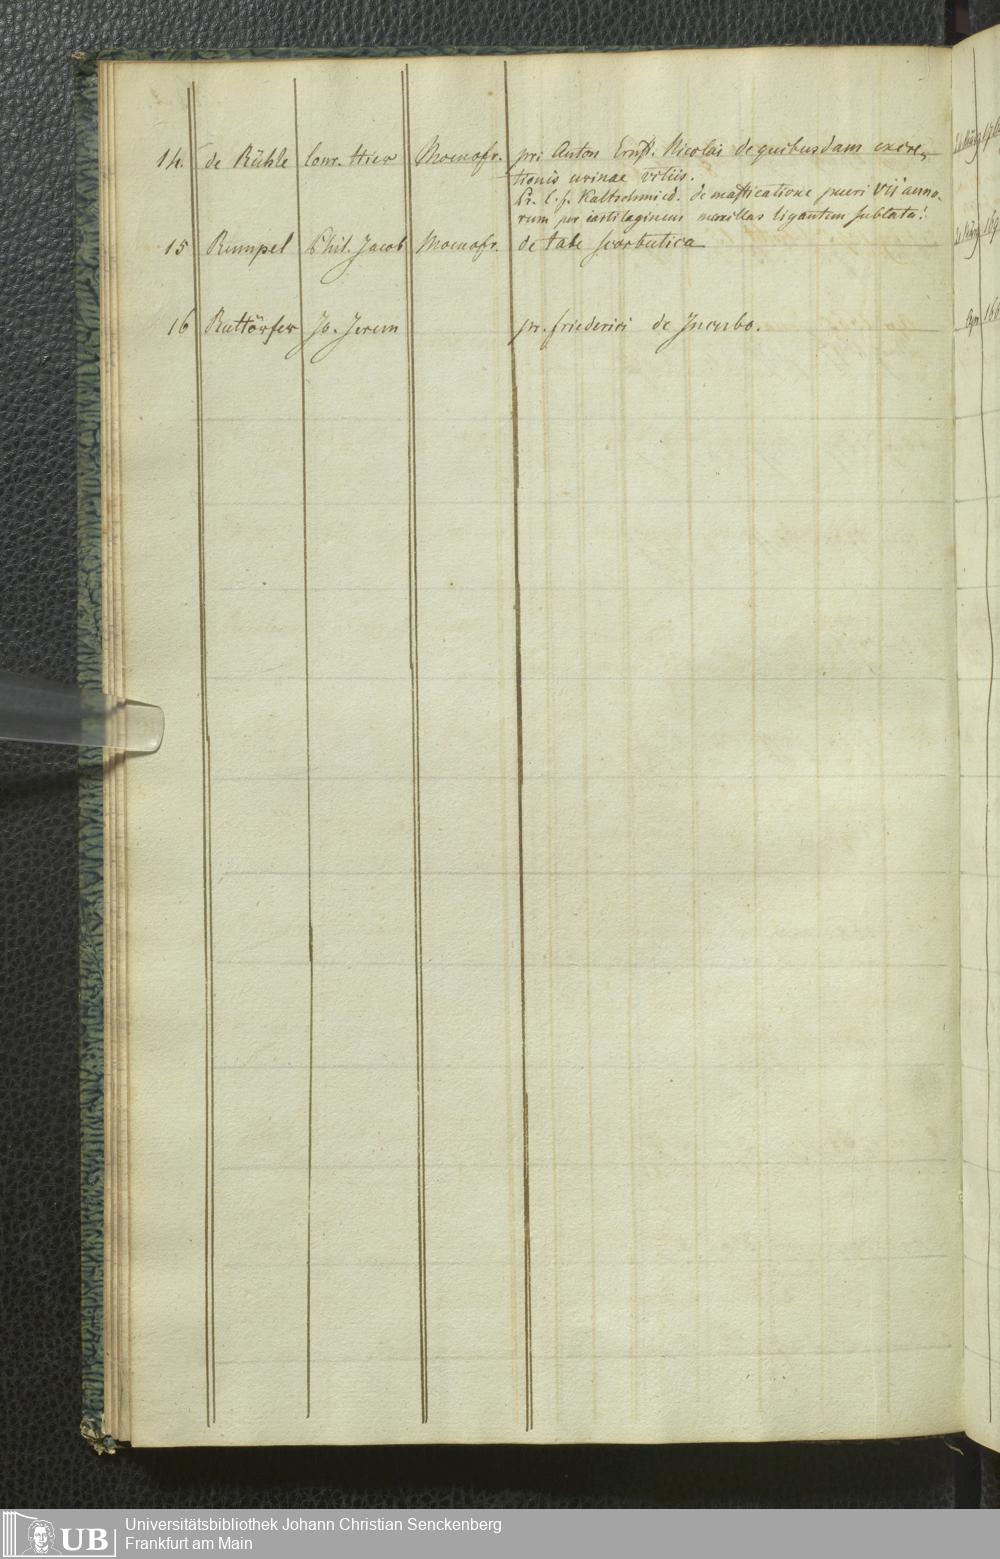 14. de Rühle Conr. Hier Moenofr. pri Anton Ernst. Nicolai de quibusdam excre-
tionis urinae vitiis.
Pr. C. f. Kaltschmied. de masticatione pueri VII anno-
rum per cartilagineus maxillas ligantem sublata.
15 Rumpel Phil. Jacob Moenofr. de tabe scorbutica
16 Ruttörfer Jo. Jerem pr. friederici de Incubo.
UB
Universitätsbibliothek Johann Christian Senckenberg
Frankfurt am Main